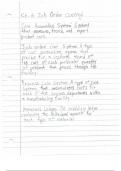 Ch. 6 Job Order Costing
Cost Accounting System: A system
that measures, tracks, and report
product costs.
Job order Cost System: A type
of cost accounting system that
provides for a separate record of
the cost of each particular quantity
of product that passes through the
factory.
Process Cost System: A type of
System that accumulates costs for
each of the various departments within
a manufacturing facility.
Materials Ledger:
the individual account for
each type of material.